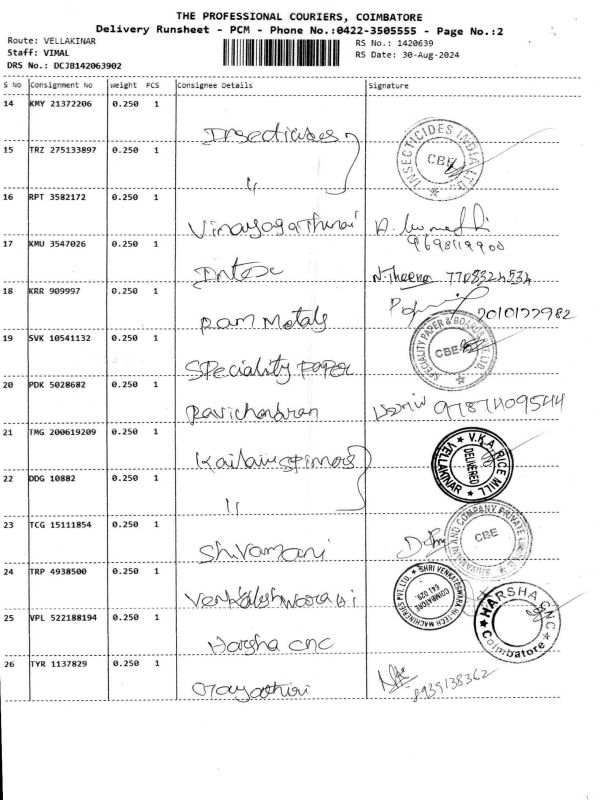 THE PROFESSIONAL COURIERS, COIMBATORE
Delivery Runsheet - PCM - Phone No.:0422-3505555 - Page No.:2
Route: VELLAKINAR
RS No.: 1420639
Staff: VIMAL
RS Date: 30-Aug-2024
DRS No.: DCJB142063902
S No Consignment No Weight PCS Consignee Details Signature
14 KMY 21372206 0.250 1
Insecticides
INSECTICIDES INDIA LTD. CBE
15 TRZ 275133897 0.250 1
16 RPT 3582172 0.250 1
9698119900
17 KMU 3547026 0.250 1
Intec
N.Theena 7708324534
18 KRR 909997 0.250 1
Ram Metals
19 SVK 10541132 0.250 1
Speciality Paper
SPECIALITY PAPER & BOARDS PVT LTD. CBE
20 PDK 5028682 0.250 1
Ravichandran
21 TMG 200619209 0.250 1
V.K.A. RICE MILL DELIVERED VELLAKINAR
22 DDG 10882 0.250 1
23 TCG 15111854 0.250 1
Shivamani
SHIVAMANI AND COMPANY PRIVATE CBE
24 TRP 4938500 0.250 1
SHRI VENKATESHWARA HI TECH MACHINERIES PVT LTD. COIMBATORE 641 029.
25 VPL 522188194 0.250 1
Harsha CNC
HARSHA CNC Coimbatore
26 TYR 1137829 0.250 1
Gayathiri
8939138362